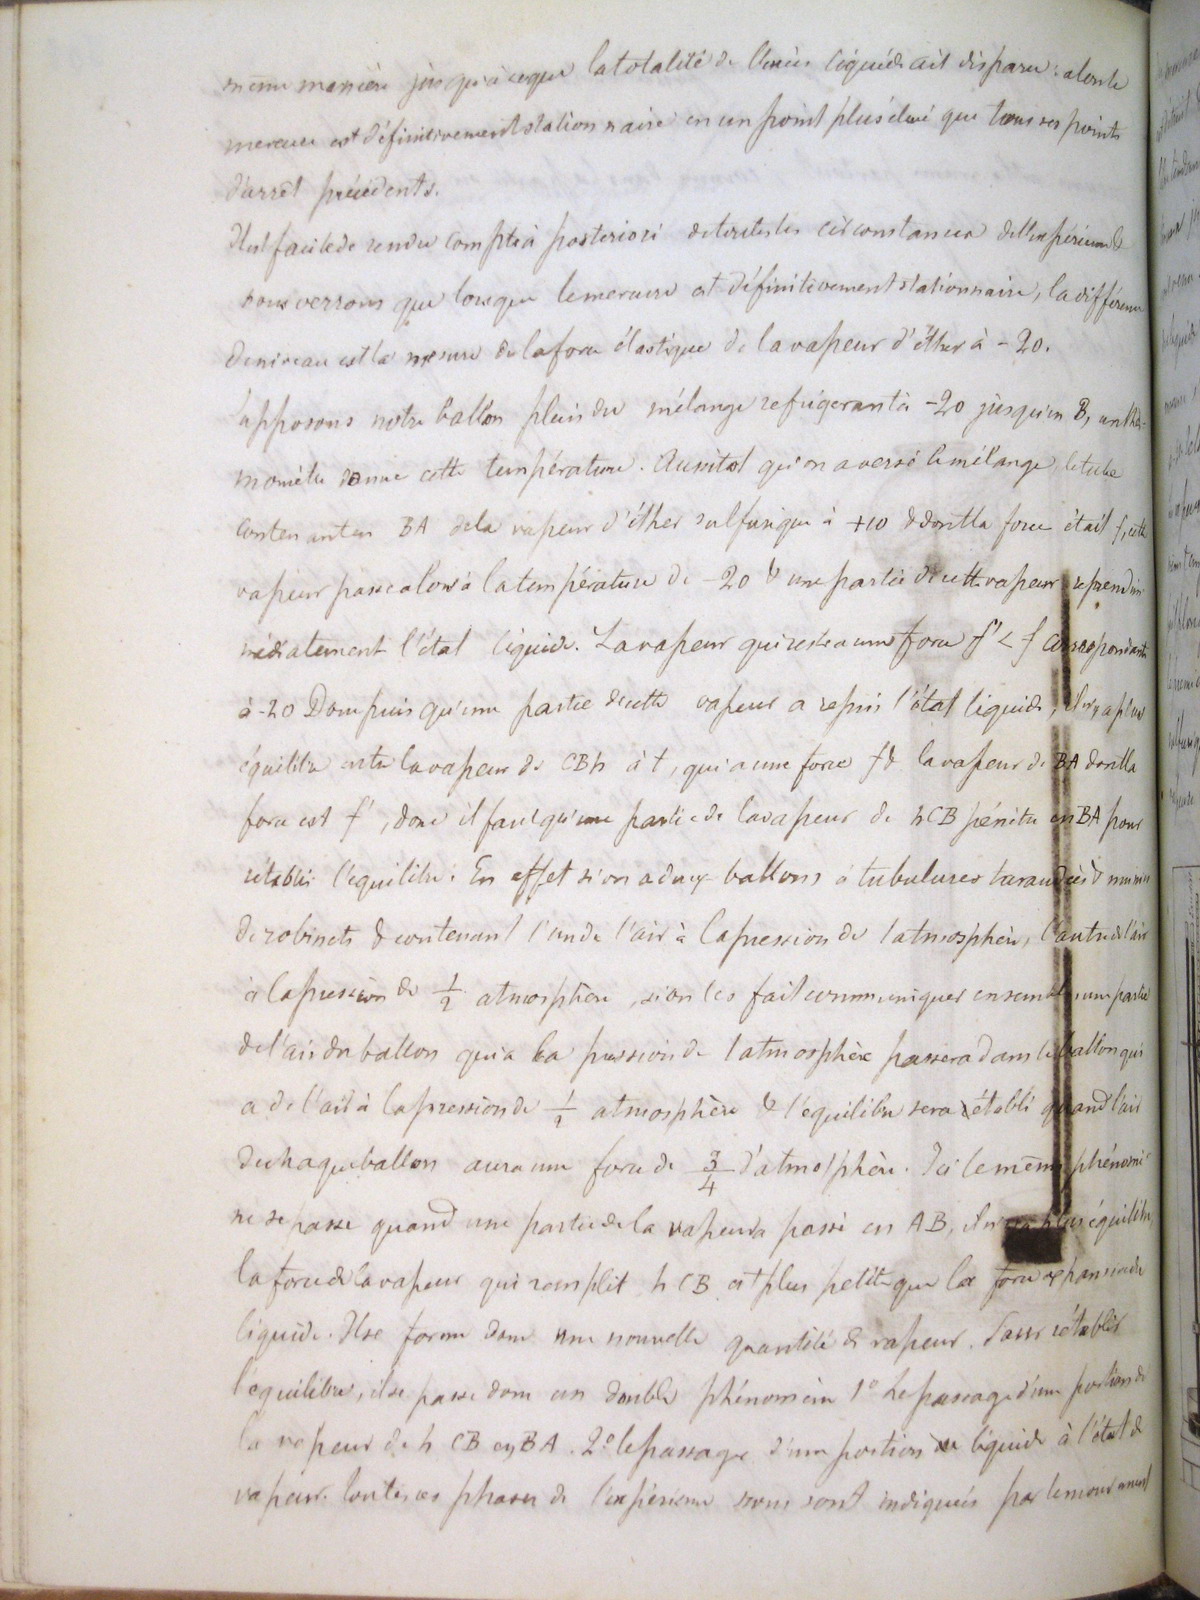 même manière jusqu'à ce que la totalité de l'excès liquide ait disparu : alors le
mercure est définitivement stationnaire en un point plus élevé que tous ses points
d'arrêt précédents.
Il est facile de rendre compte à posteriori de toutes les circonstances de l'expérience &
nous verrons que lorsque le mercure est définitivement stationnaire, la différence
de niveau est la mesure de la force élastique de la vapeur d'éther à -20.
Supposons notre ballon plein du mélange refrigerant à -20 jusqu'en B, un ther-
momètre donne cette température. Aussitot qu'on a versé le mélange, le tube
contenant en BA de la vapeur d'éther sulfurique à +10 & dont la force était f, cette
vapeur passe alors à la température de -20 & une partie de cette vapeur reprend im-
médiatement l'état liquide. La vapeur qui reste a une force f' < f correspondante
à -20 Donc puis qu'une partie de cette vapeur a repris l'état liquide, il n'y a plus
équilibre entre la vapeur de CBh à t, qui a une force f & la vapeur de BA dont la
force est f', donc il faut qu'une partie de la vapeur de hCB pénètre en BA pour
rétablir l'équilibre. En effet si on a deux ballons à tubulures taraudées & munies
de robinets & contenant l'un de l'air à la pression de l'atmosphère, l'autre de l'air
à la pression de 1/2 atmosphère, si on les fait communiquer ensemble une partie
de l'air du ballon qui a la pression de l'atmosphère passera dans le ballon qui
a de l'air à la pression de 1/2 atmosphère & l'équilibre sera établi quand l'air
de chaque ballon aura une force de 3/4 d'atmosphère. Ici le même phénomè-
ne se passe quand une partie de la vapeur a passé en AB, il n'y a plus équilibre,
la force de la vapeur qui remplit hCB est plus petite que la force expansive du
liquide. Il se forme donc une nouvelle quantité de vapeur. Pour rétablir
l'équilibre, il se passe donc un double phénomène 1° Le passage d'une portion de
la vapeur de h CB en BA. 2° le passage d'une portion du liquide à l'état de
vapeur. Toutes ces phases de l'expérience nous sont indiquées par le mouvement